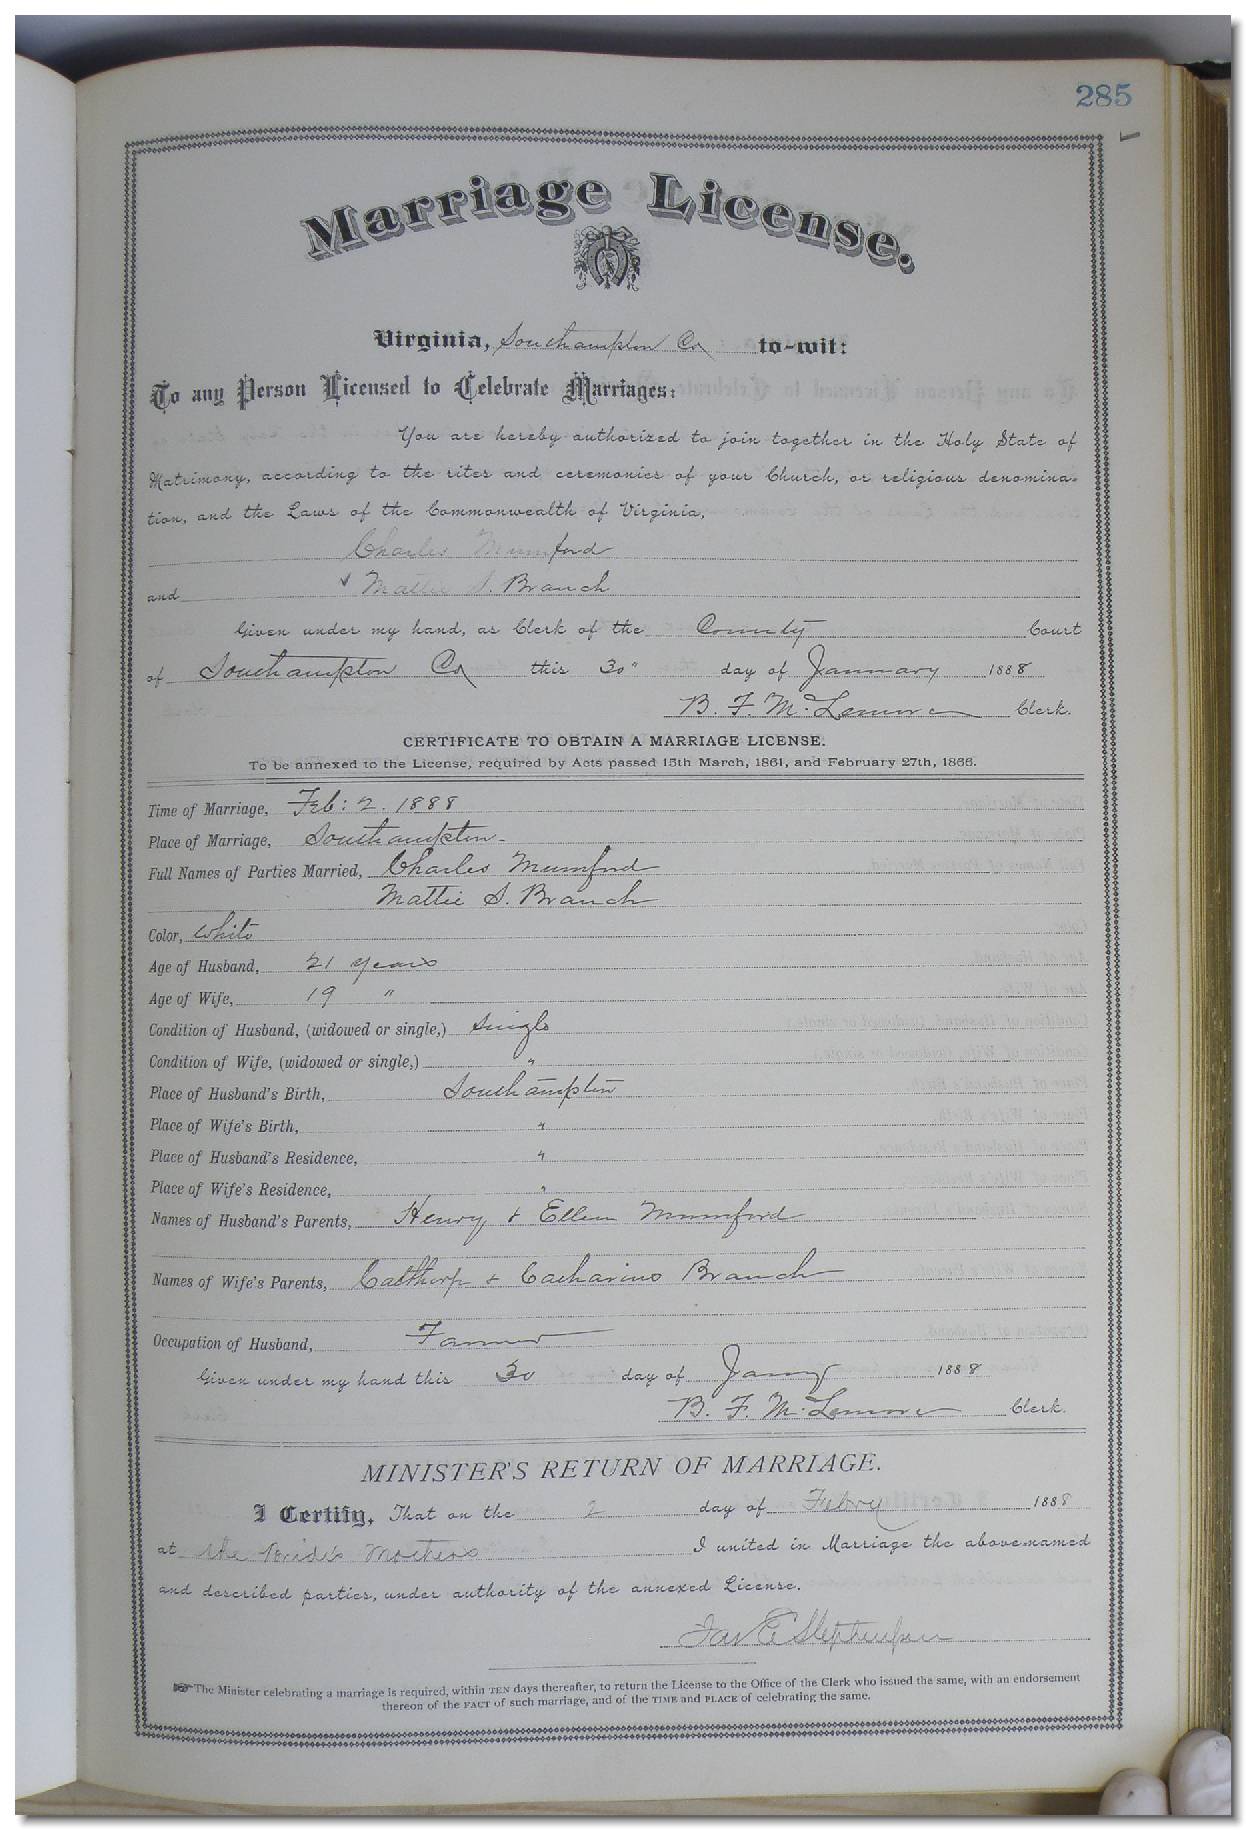 285
Marriage License.
Virginia, Southampton Co to-wit:
To any Person Licensed to Celebrate Marriages:
You are hereby authorized to join together in the Holy State of
Matrimony, according to the rites and ceremonies of your Church, or religious denomina-
tion, and the Laws of the Commonwealth of Virginia,
Charles Mumford
and ✓ Mattie S. Branch
Given under my hand, as Clerk of the County Court
of Southampton Co this 30" day of January 1888
B. F. McLemore Clerk.
CERTIFICATE TO OBTAIN A MARRIAGE LICENSE.
To be annexed to the License, required by Acts passed 15th March, 1861, and February 27th, 1866.
Time of Marriage, Feb: 2. 1888
Place of Marriage, Southampton-
Full Names of Parties Married, Charles Mumford
Mattie S. Branch
Color, White
Age of Husband, 21 years
Age of Wife, 19 "
Condition of Husband, (widowed or single,) Single
Condition of Wife, (widowed or single,) "
Place of Husband's Birth, Southampton
Place of Wife's Birth, "
Place of Husband's Residence, "
Place of Wife's Residence, "
Names of Husband's Parents, Henry & Ellen Mumford
Names of Wife's Parents, Calthorp & Catharine Branch
Occupation of Husband, Farmer
Given under my hand this 30 day of Jany 1888
B. F. McLemore Clerk.
MINISTER'S RETURN OF MARRIAGE.
I Certify, That on the 2 day of Febry 1888
at the Brides Mothers I united in Marriage the above-named
and described parties, under authority of the annexed License.
Stephenson
☞ The Minister celebrating a marriage is required, within TEN days thereafter, to return the License to the Office of the Clerk who issued the same, with an endorsement
thereon of the FACT of such marriage, and of the TIME and PLACE of celebrating the same.